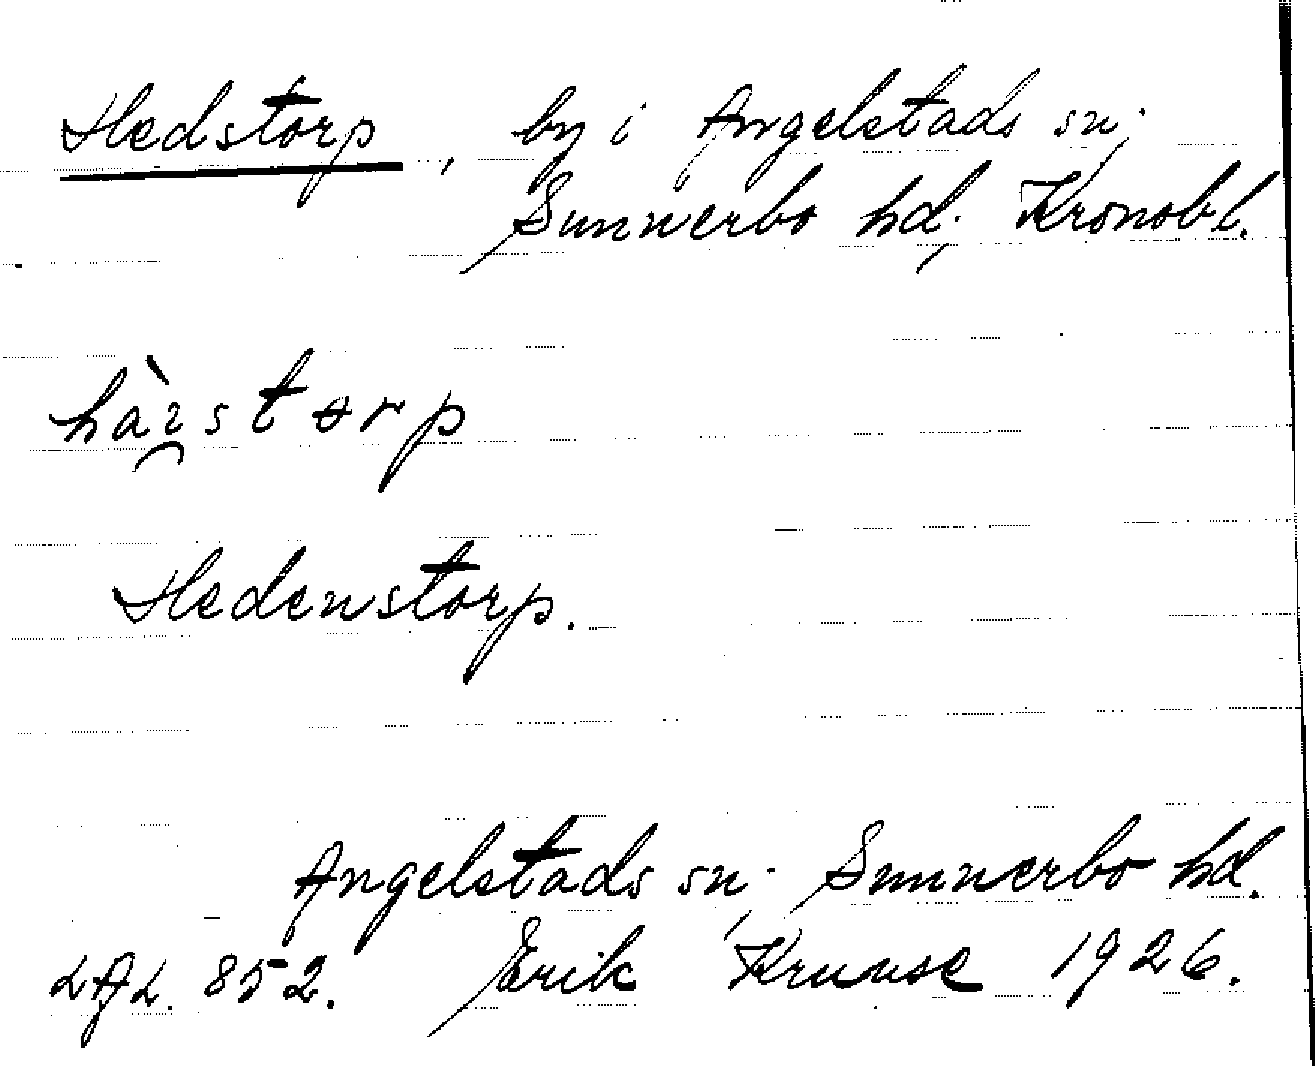 Hedstorp, by i Angelstads sn;
Sunnerbo hd; Kronob l.
hàı̯storp
Hedenstorp.
Angelstads sn; Sunnerbo hd.
LAL. 852. Erik Kruuse 1926.